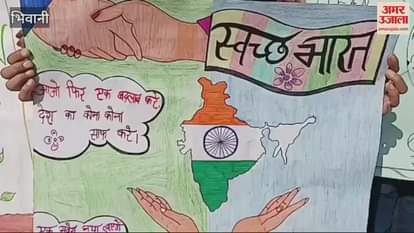 भिवानी
अमर उजाला
amarujala.com
स्वच्छ भारत
आओ फिर एक
देश का कोना कोना
साफ करे।